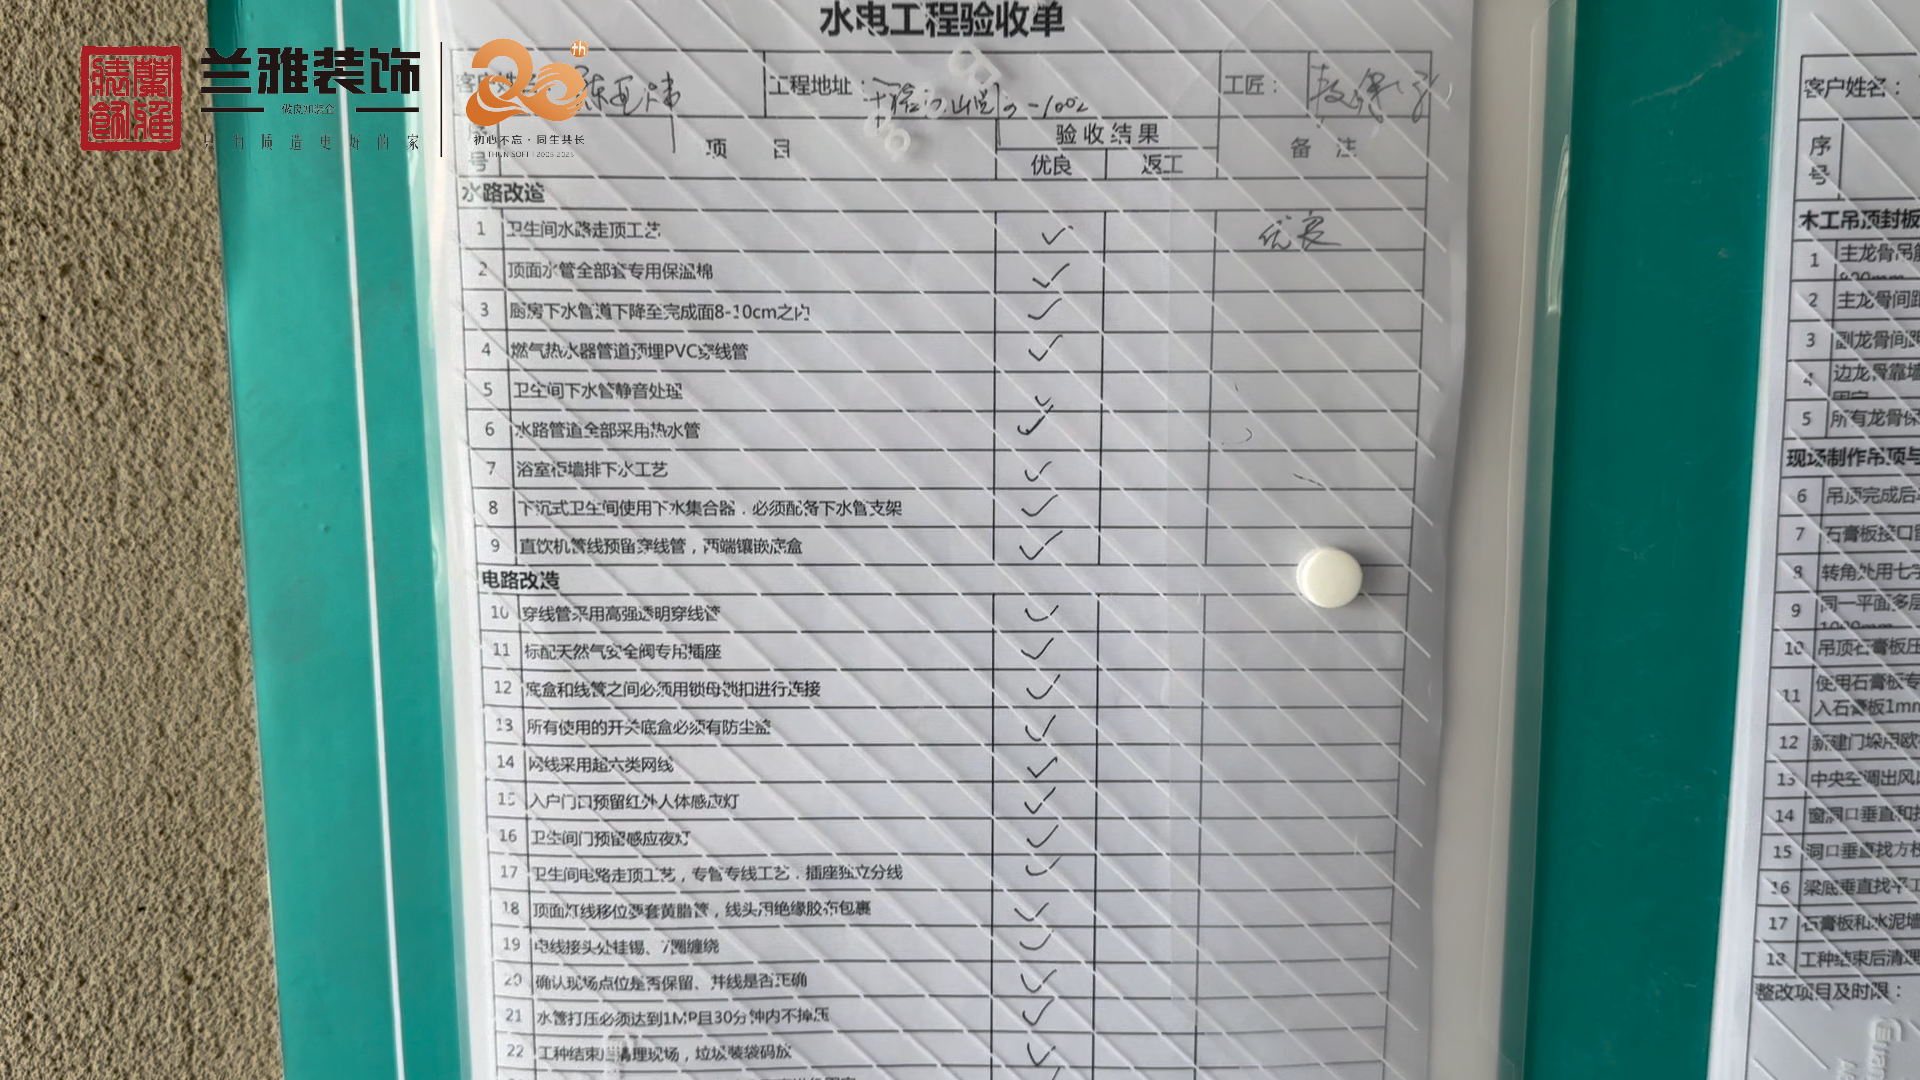 水电工程验收单
兰雅装饰
20th
初心不忘·同生共长
客户姓名：
工程地址：
工匠：
序号 项目 验收结果 备注
优良 返工
水路改造
1 卫生间水路走顶工艺 优良
2 顶面水管全部套专用保温棉
3 厨房下水管道下降至完成面8-10cm之内
4 燃气热水器管道预埋PVC穿线管
5 卫生间下水管静音处理
6 水路管道全部采用热水管
7 浴室柜墙排下水工艺
8 下沉式卫生间使用下水集合器．必须配备下水管支架
9 直饮机管线预留穿线管，两端镶嵌底盒
电路改造
10 穿线管采用高强透明穿线管
11 标配天然气安全阀专用插座
12 底盒和线管之间必须用锁母锁扣进行连接
13 所有使用的开关底盒必须有防尘盖
14 网线采用超六类网线
15 入户门口预留红外人体感应灯
16 卫生间门预留感应夜灯
17 卫生间电路走顶工艺，专管专线工艺．插座独立分线
18 顶面灯线移位要套黄腊管，线头用绝缘胶布包裹
19 电线接头处挂锡、7圈缠绕
20 确认现场点位是否保留、并线是否正确
21 水管打压必须达到1MP且30分钟内不掉压
22 工种结束后清理现场，垃圾装袋码放
客户姓名：
序号
木工吊顶封板
1 主龙骨吊筋
2 主龙骨间距
3 副龙骨间距
4 边龙骨靠墙
固定
5 所有龙骨保
现场制作吊顶与
6 吊顶完成后
7 石膏板接口留
8 转角处用七字
9 同一平面多层
10 吊顶石膏板压
11 使用石膏板专
入石膏板1mm
12 新建门垛用欧
13 中央空调出风口
14 窗洞口垂直和
15 洞口垂直找方
16 梁底垂直找平
17 石膏板和水泥墙
18 工种结束后清理
整改项目及时限：